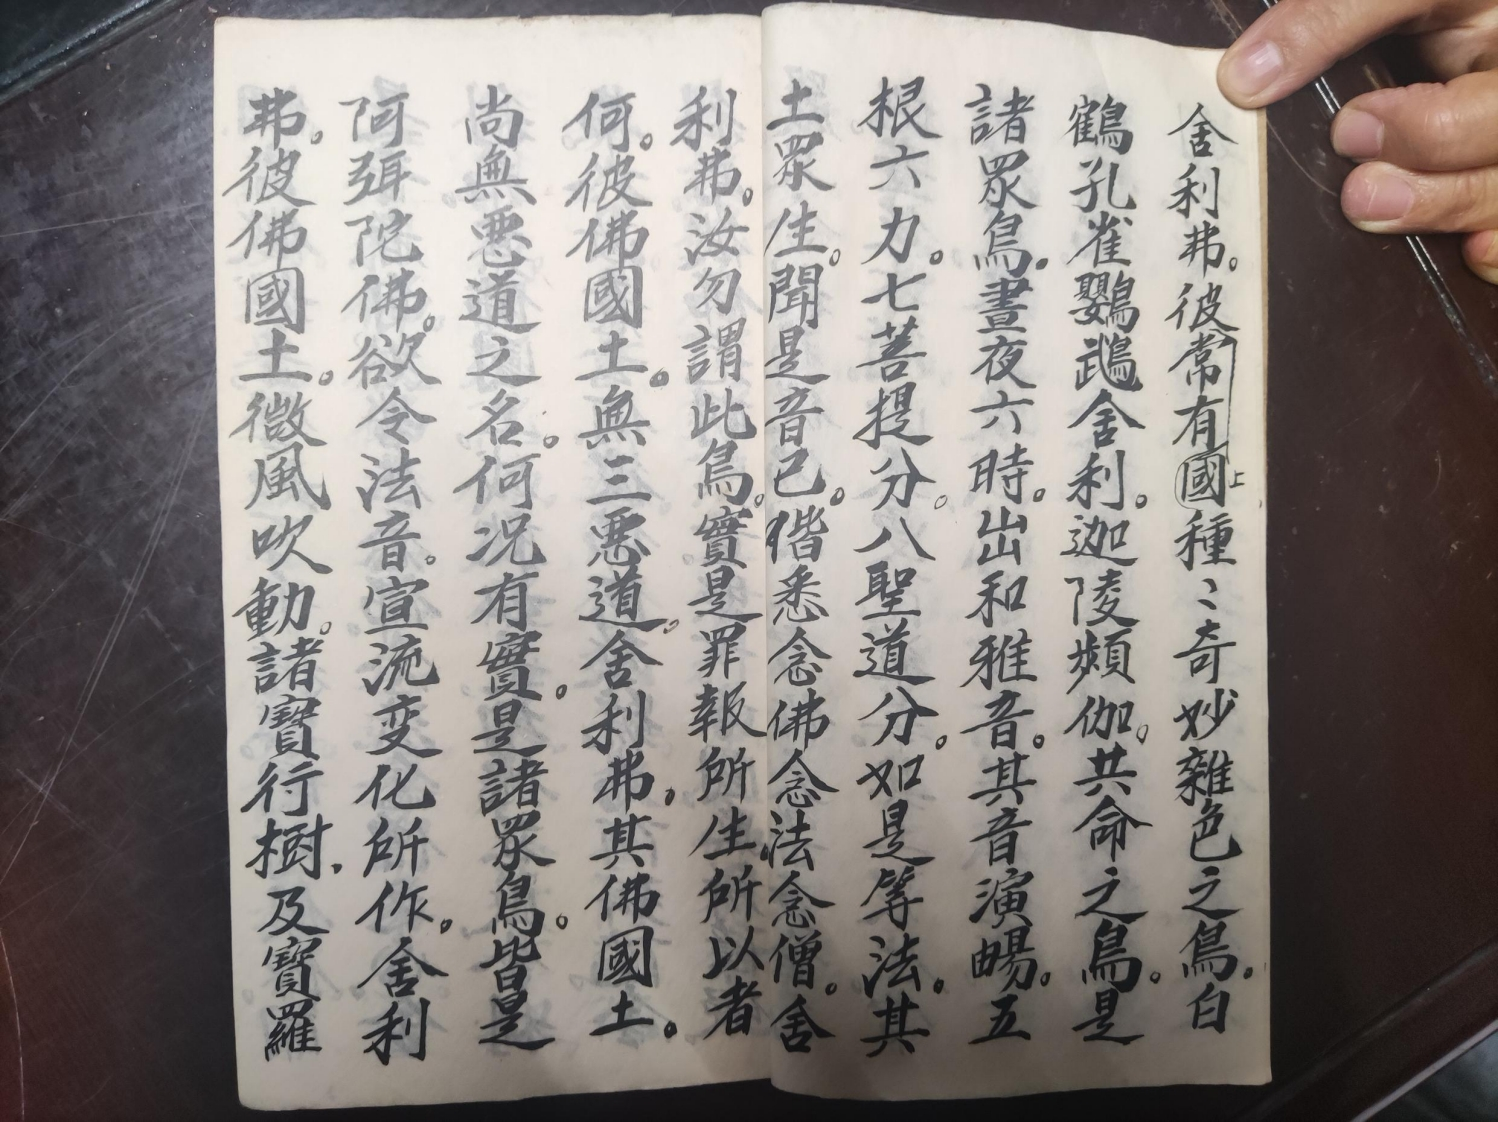 舍利弗。彼常有國上種〻奇妙雜色之鳥。白
鶴孔雀鸚鵡舍利。迦陵頻伽。共命之鳥。是
諸眾鳥。晝夜六時。出和雅音。其音演暢。五
根六力。七菩提分。八聖道分。如是等法。其
土眾生。聞是音已。偕悉念佛念法念僧。舍
利弗。汝勿謂此鳥。實是罪報所生。所以者
何。彼佛國土。無三惡道。舍利弗。其佛國土。
尚無悪道之名。何况有實。是諸眾鳥。皆是
阿弭陀佛。欲令法音。宣流变化所作。舍利
弗。彼佛國土。微風吹動。諸寶行樹。及寶羅